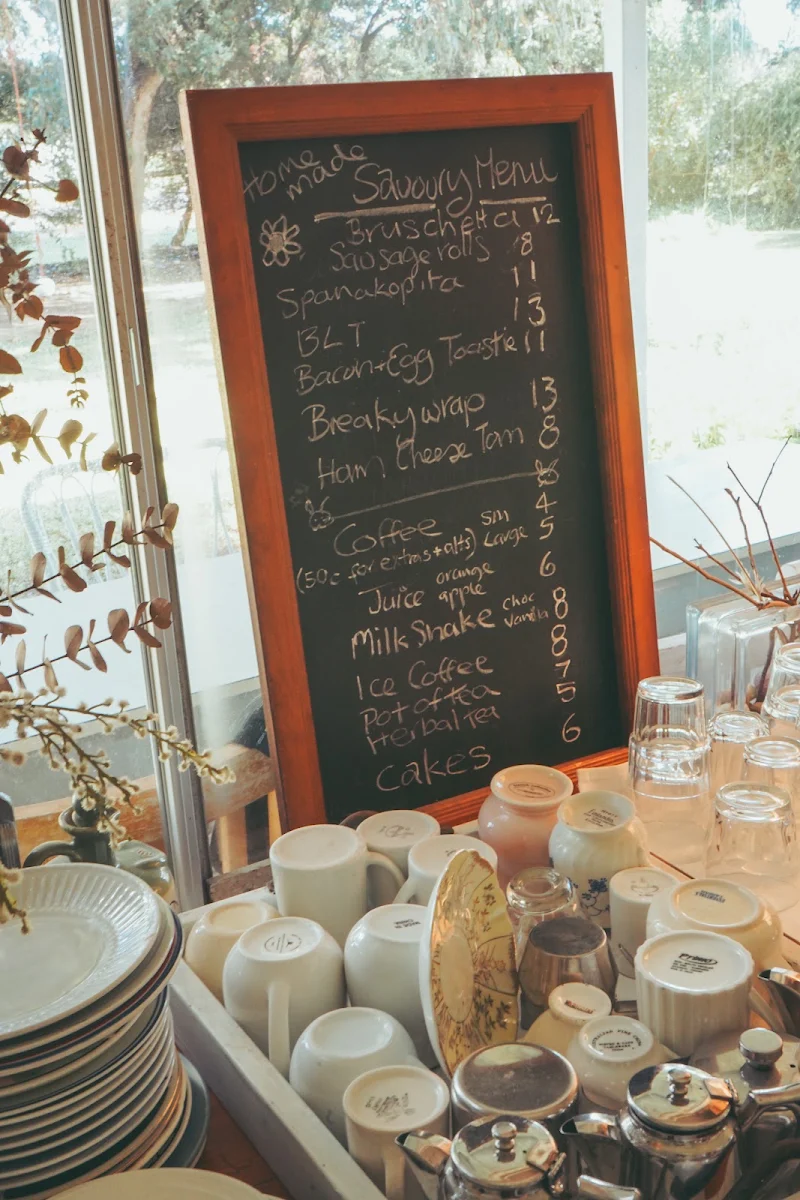 Home made
Savoury Menu
Bruschetta 12
Sausage rolls 8
Spanakopita 11
BLT 13
Bacon+Egg Toastie 11
Breaky wrap 13
Ham Cheese Tom 8
Coffee sm 4
(50c for extras+alts) Large 5
Juice orange apple 6
Milk Shake Choc Vanilla 8
Ice Coffee 8
Pot of tea 7
Herbal Tea 5
Cakes 6